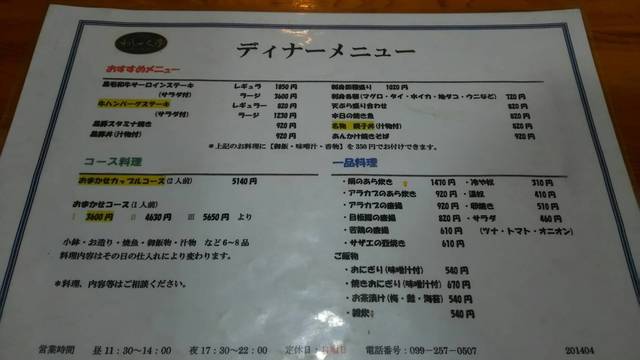 ディナーメニュー
おすすめメニュー
黒毛和牛サーロインステーキ レギュラー 1850円
(サラダ付) ラージ 3600円
牛ハンバーグステーキ レギュラー 820円
(サラダ付) ラージ 1230円
黒豚スタミナ焼き 920円
黒豚丼(汁物付) 920円
刺身盛り 1020円
刺身各種(マグロ・タイ・ホイカ・地ダコ・ウニなど) 720円
天ぷら盛り合わせ 820円
本日の焼き魚 620円
名物 親子丼(汁物付) 820円
あんかけ焼きそば 920円
*上記のお料理に【御飯・味噌汁・香物】を350円でお付けできます。
コース料理
おまかせカップルコース(2人前) 5140円
おまかせコース(1人前)
Ⅰ 3600円 Ⅱ 4630円 Ⅲ 5650円 より
小鉢・お造り・焼魚・御飯物・汁物 など6~8品
料理内容はその日の仕入により変わります。
*料理、内容等はご相談ください。
一品料理
・鯛のあら炊き 1470円
・アラカブのあら炊き 920円
・アラカブの唐揚 820円
・目板鰈の唐揚 820円
・若鶏の唐揚 610円
・サザエの壺焼き 610円
・冷や奴 310円
・湯奴 410円
・卵焼き 510円
・サラダ 460円
(ツナ・トマト・オニオン)
ご飯物
・おにぎり(味噌汁付) 540円
・焼きおにぎり(味噌汁付) 670円
・お茶漬け(梅・鮭・海苔) 540円
・雑炊 540円
営業時間 昼11:30~14:00 夜17:30~22:00 定休日:日曜日 電話番号:099-257-0507 201404